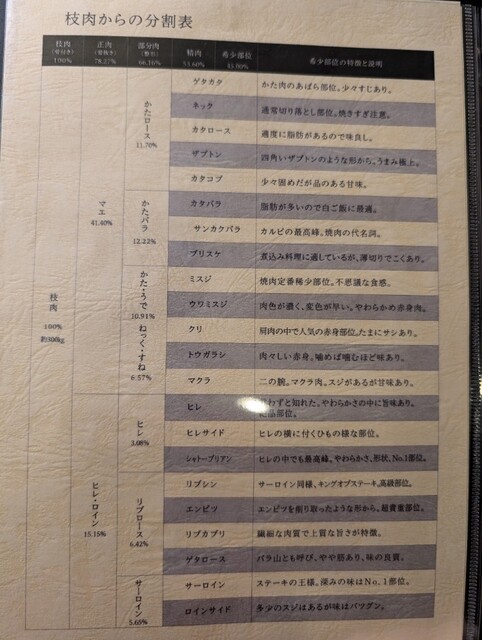 枝肉からの分割表
枝肉 正肉 部分肉 精肉 希少部位 希少部位の特徴と説明
(骨付き) (骨抜き) (整形)
100% 78.27% 66.16% 53.60% 45.00%
枝肉
100%
約500kg
マエ
41.40%
かたロース
11.70%
ゲタカタ かた肉のあばら部位。少々すじあり。
ネック 通常切り落とし部位。焼きすぎ注意。
カタロース 適度に脂肪があるので味良し。
ザブトン 四角いザブトンのような形から。うまみ極上。
カタコブ 少々固めだが品のある甘味。
かたバラ
12.22%
カタバラ 脂肪が多いので白ご飯に最適。
サンカクバラ カルビの最高峰、焼肉の代名詞。
ブリスケ 煮込み料理に適しているが、薄切りでこくあり。
かた・うで
10.91%
ねっく・すね
6.57%
ミスジ 焼肉定番稀少部位。不思議な食感。
ウワミスジ 肉色が濃く、変色が早い。やわらかめ赤身肉。
クリ 肩肉の中で人気の赤身部位。たまにサシあり。
トウガラシ 肉々しい赤身。噛めば噛むほど味あり。
マクラ 二の腕。マクラ肉。スジがあるが甘味あり。
ヒレ・ロイン
15.15%
ヒレ
3.08%
ヒレ わずと知れた。やわらかさの中に旨味あり。
品部位。
ヒレサイド ヒレの横に付くひもの様な部位。
シャトーブリアン ヒレの中でも最高峰、やわらかさ、形状、No.1部位。
リブロース
6.42%
リブシン サーロイン同様、キングオブステーキ。高級部位。
エンピツ エンピツを削り取ったような形から、超貴重部位。
リブカブリ 繊細な肉質で上質な旨さが特徴。
ゲタロース バラ山とも呼び、やや筋あり、味の良質。
サーロイン
5.65%
サーロイン ステーキの王様。深みの味はNo,1部位。
ロインサイド 多少のスジはあるが味はバツグン。